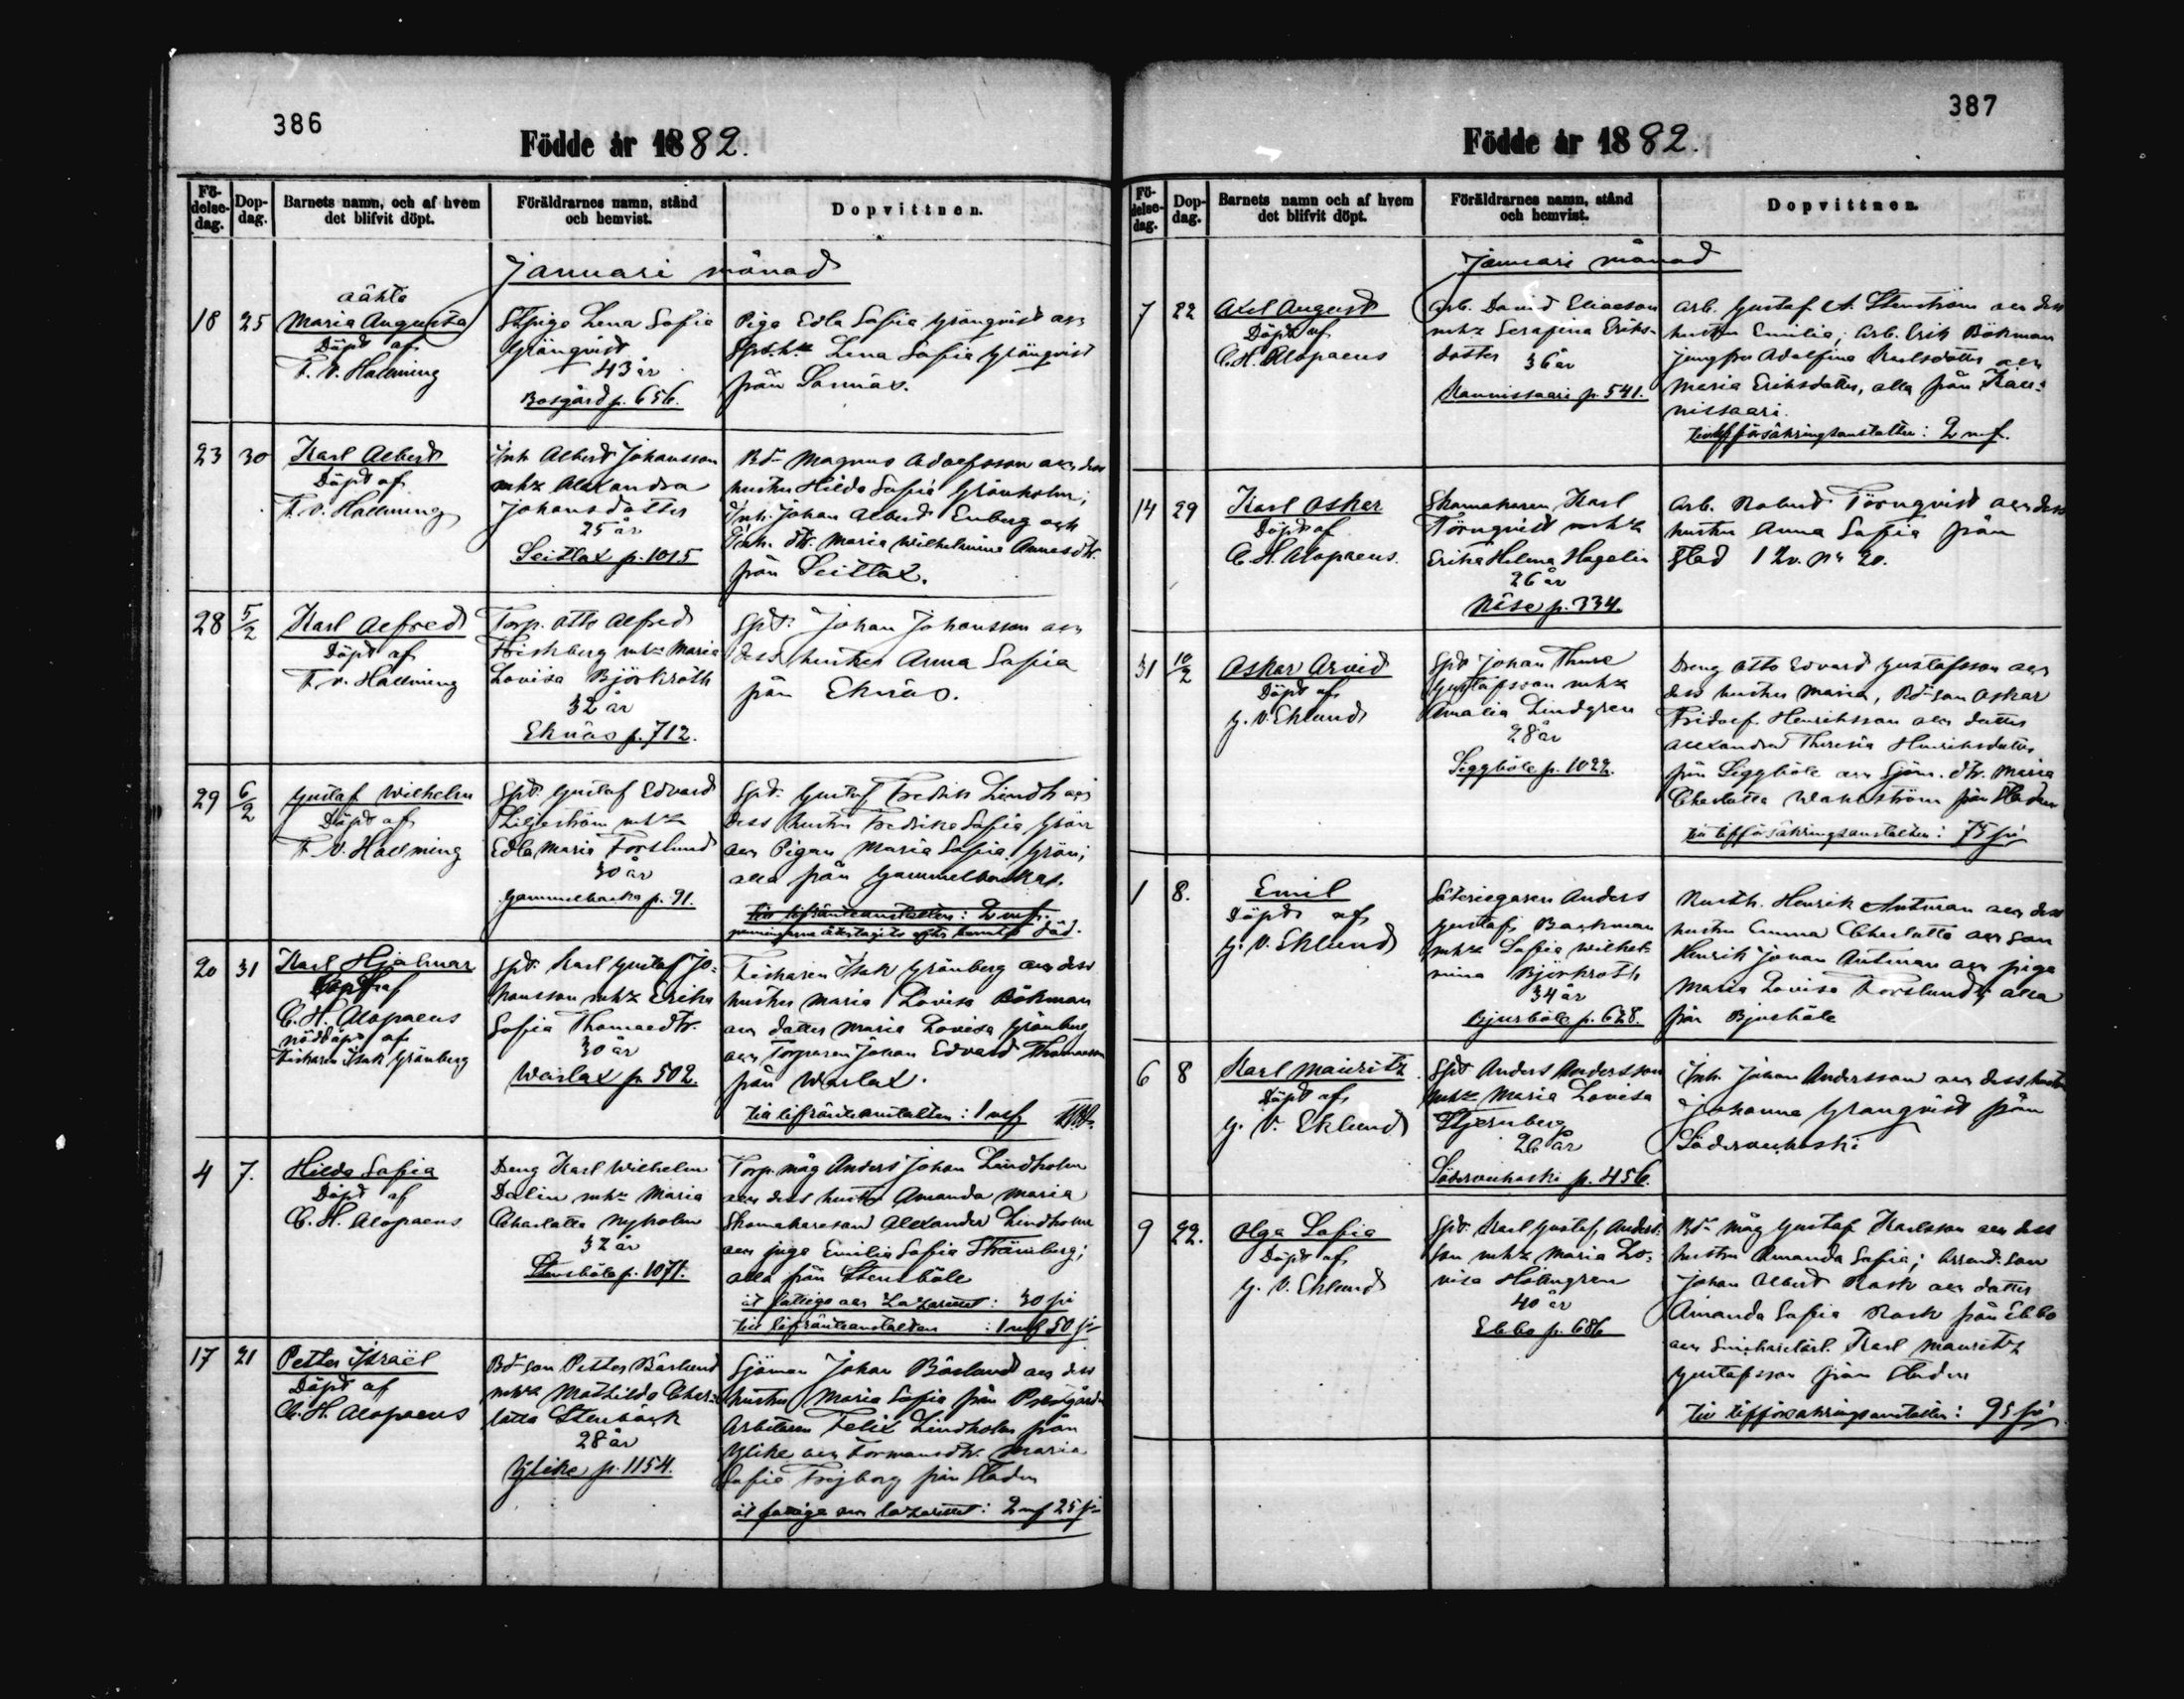 386
Födde år 1882.
Fö-
delse-
dag.
Dop-
dag.
Barnets namn, och af hvem
det blifvit döpt.
Föräldrarnes namn, stånd
och hemvist.
Dopvittnen.
Januari månad
18
25
oäkta
Maria Augusta
Döpt af
F. V. Hallming
Lena Sofia
Grönqvist
43 år
Bosgård p. 656.
Piga Edla Sofia Grönqvist och
Lena Sofia Grönqvist
från Sannäs.
23
30
Karl Albert
Döpt af
F. V. Hallming
Inh. Albert Johansson
mhz Alexandra
Johansdotter
25 år
Seitlax p. 1015
Bd. Magnus Adolfsson och dess
hustru Hilda Sofia Grönholm;
Inh. Johan Albert Enberg och
Inh. dtr. Maria Wilhelmina
från Seitlax.
28
5/2
Karl Alfred
Döpt af
F. V. Hallming
Torp. Otto Alfred
Friskberg mhz Maria
Lovisa Björkroth
32 år
Eknäs p. 712.
Spt. Johan Johansson och
dess hustru Anna Sofia
från Eknäs.
29
6/2
Gustaf Wilhelm
Döpt af
F. V. Hallming
Spt. Gustaf Edvard
Liljeström mhz
Edla Maria Forslund
30 år
Gammelbacka p. 91.
Spt. Gustaf Fredrik Lindh och
dess hustru Fredrika Sofia Grön
och Pigan Maria Sofia Grön;
alla från Gammelbacka.
till lifränteanstalten: 2 mf.
penningarne återtagits efter barnets död.
20
31
Karl Hjalmar
Döpt af
C. H. Alopaeus
nöddöpt af
Fiskaren Isak Grönberg
Spt. Karl Gustaf Jo-
hansson mhz Erika
Sofia Thomasdtr.
30 år
Warlax p. 502.
Fiskaren Isak Grönberg och dess
hustru Maria Lovisa Bökman
och dotter Maria Lovisa Grönberg
och Torparen Johan Edvard Thomasson
från Warlax.
till lifränteanstalten: 1 mf
4
7.
Hilda Sofia
Döpt af
C. H. Alopaeus
Dreng Karl Wilhelm
Dalin mhz Maria
Charlotta Nyholm
32 år
Stensböle p. 1071.
Torp. måg Anders Johan Lindholm
och dess hustru Amanda Maria
Skomakareson Alexander Lindholm
och piga Emilia Sofia Strömberg;
alla från Stensböle
åt fattiga och Lazarettet: 30 pi
till lifränteanstalten: 1 mf 50 pi
17
21
Petter Israël
Döpt af
C. H. Alopaeus
Bd. son Petter Bärlund
mhz Mathilda Char-
lotta Stenbäck
28 år
Ylike p. 1154.
Sjöman Johan Bärlund och dess
hustru Maria Sofia från Prestgården
Arbetaren Felix Lindholm från
Ylike och Formansdtr. Maria
Sofia Frejborg från Staden
åt fattiga och lazarettet: 2 mf 25 pi
387
Födde år 1882.
Fö-
delse-
dag.
Dop-
dag.
Barnets namn och af hvem
det blifvit döpt.
Föräldrarnes namn, stånd
och hemvist.
Dopvittnen.
Januari månad
7
22
Axel August
Döpt af
C. H. Alopaeus
Arb. David Eliasson
mhz Serafina Eriks-
dotter 36 år
Kaunissaari p. 541.
Arb. Gustaf A. Stenström och dess
hustru Emilia; Arb. Erik Bökman
jungfru Adolfina Karlsdotter och
Maria Eriksdotter, alla från Kau-
nissaari.
till lifförsäkringsanstalten: 2 mf.
14
29
Karl Oskar
Döpt af
C. H. Alopaeus.
Skomakaren Karl
Törnqvist mhz
Erika Helena Hagelin
26 år
Näse p. 334.
Arb. Robert Törnqvist och dess
hustru Anna Sofia från
Stad 1 Qv. No 20.
31
10/2
Oskar Arvid
Döpt af
G. V. Eklund
Spt Johan Thure
Gustafsson mhz
Amalia Lindgren
28 år
Siggböle p. 1022.
Dreng Otto Edvard Gustafsson och
dess hustru Maria, Bd. son Oskar
Fridolf Henriksson och dotter
Alexandra Theresia Henriksdotter
från Siggböle och Sjöm. dtr. Maria
Charlotta Wahlström från Staden
till lifförsäkringsanstalten: 75 pi
1
8.
Emil
Döpt af
G. V. Eklund
Säteriegaren Anders
Gustaf Backman
mhz Sofia Wilhel-
mina Björkroth
34 år
Bjurböle p. 628.
Rusth. Henrik Antman och dess
hustru Emma Charlotta och son
Henrik Johan Antman och piga
Maria Lovisa Forslund; alla
från Bjurböle
6
8
Karl Mauritz
Döpt af
G. V. Eklund
Spt Anders Andersson
mhz Maria Lovisa
Stjernberg
26 år
Söderveckoski p. 456.
Inh. Johan Andersson och dess hustru
Johanna Granqvist från
Söderveckoski
9
22.
Olga Sofia
Döpt af
G. V. Eklund
Spt. Karl Gustaf Anders-
son mhz Maria Lo-
visa Holmgren
40 år
Ebbo p. 686
Bd. måg Gustaf Karlsson och dess
hustru Amanda Sofia; Arrend. son
Johan Albert Rask och dotter
Amanda Sofia Rask från Ebbo
och Snickarelärl. Karl Mauritz
Gustafsson från Staden
till lifförsäkringsanstalten: 95 pi